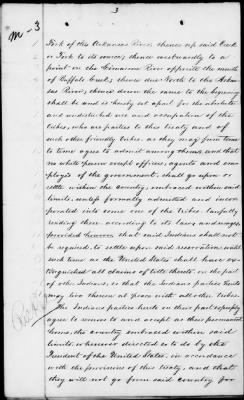 3
M-3
Fork of the Arkansas River; thence up said Creek
or Fork to its source; thence westwardly to a
point on the Cimarone River opposite the mouth
of Buffalo Creek; thence due North to the Arkan
sas River; thence down the same to the beginning
shall be and is hereby set apart for the absolute
and undisturbed use and occupation of the
tribes, who are parties to this treaty and of
such other friendly tribes as they may from time
to time agree to admit among them; and that
no white person except officers, agents and em
ployés of the government, shall go upon or
settle within the country, embraced within said
limits, unless formally admitted and incor
porated into some one of the tribes lawfully
residing there according to its laws and usages;
provided however that said Indians shall not
be required to settle upon said reservation until
such time as the United States shall have ex
tinguished all claims of title thereto, on the part
of other Indians, so that the Indians parties hereto
may live thereon at peace with all other tribes.
The Indians parties hereto on their part expressly
agree to remove to and accept as their permanent
home, the country embraced within said
limits, whenever directed so to do by the
President of the United States, in accordance
with the provisions of this treaty, and that
they will not go from said country for